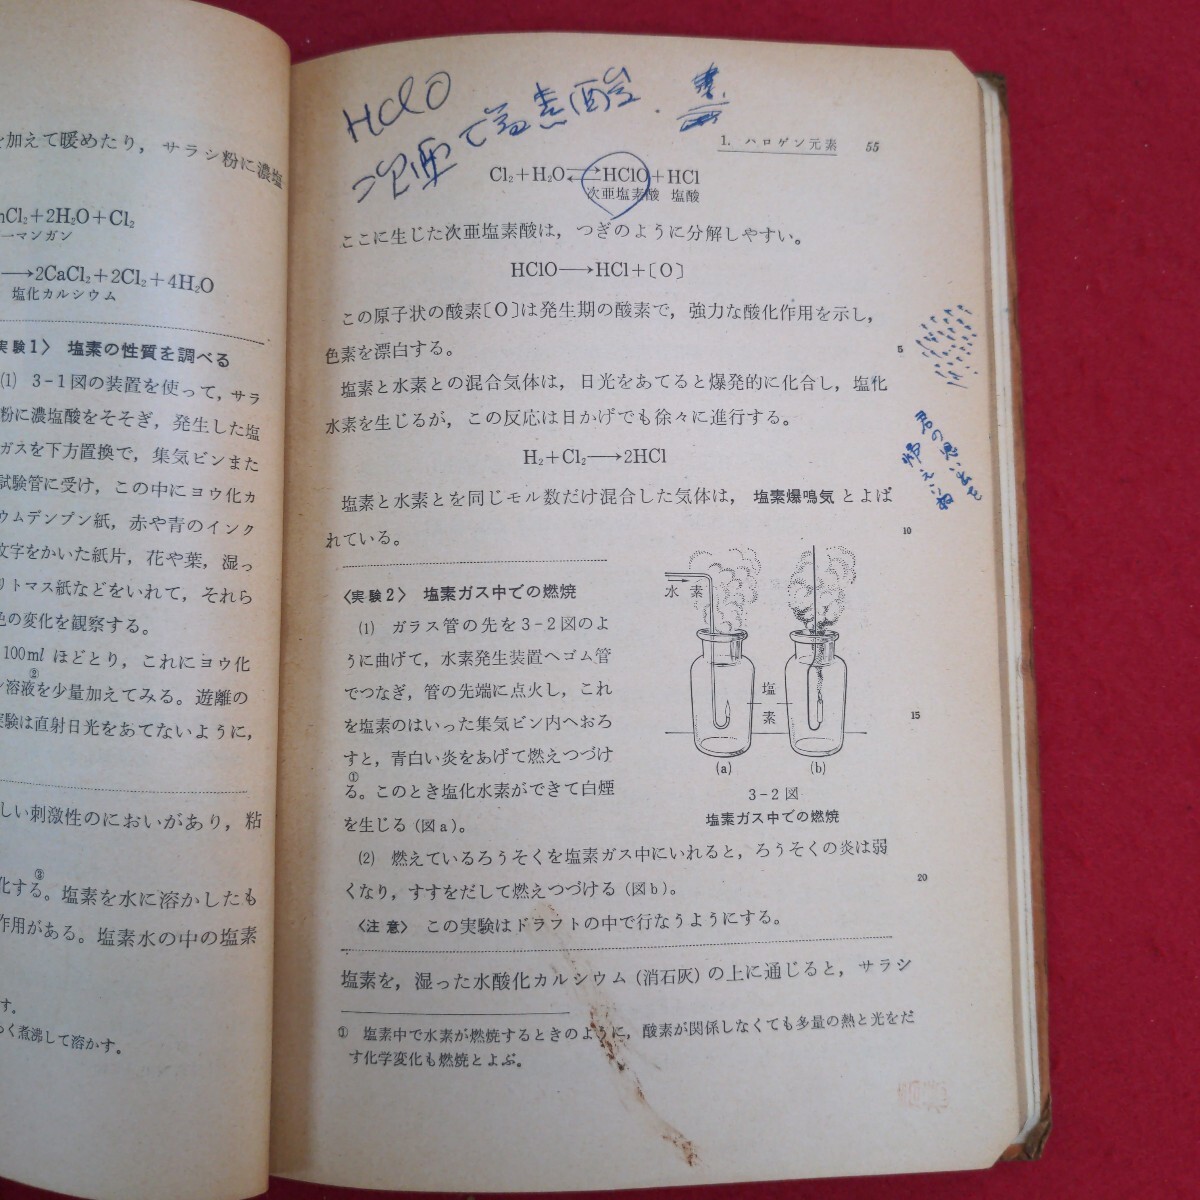 を加えて暖めたり，サラシ粉に濃塩
nCl₂+2H₂O+Cl₂
ーマンガン
⟶2CaCl₂+2Cl₂+4H₂O
塩化カルシウム
実験1〉 塩素の性質を調べる
(1) 3-1図の装置を使って，サラ
粉に濃塩酸をそそぎ，発生した塩
ガスを下方置換で，集気ビンまた
試験管に受け，この中にヨウ化カ
ウムデンプン紙，赤や青のインク
文字をかいた紙片，花や葉，湿っ
リトマス紙などをいれて，それら
色の変化を観察する。
100ml ほどとり，これにヨウ化
②
ン溶液を少量加えてみる。遊離の
実験は直射日光をあてないように，
しい刺激性のにおいがあり，粘
③
化する。塩素を水に溶かしたも
作用がある。塩素水の中の塩素
す。
く煮沸して溶かす。
HClO
素
1. ハロゲン元素 55
Cl₂+H₂O⇄HClO+HCl
次亜塩素酸 塩酸
ここに生じた次亜塩素酸は，つぎのように分解しやすい。
HClO⟶HCl+〔O〕
この原子状の酸素〔O〕は発生期の酸素で，強力な酸化作用を示し，
色素を漂白する。
5
塩素と水素との混合気体は，日光をあてると爆発的に化合し，塩化
水素を生じるが，この反応は日かげでも徐々に進行する。
H₂+Cl₂⟶2HCl
塩素と水素とを同じモル数だけ混合した気体は，塩素爆鳴気とよば
れている。
10
〈実験2〉 塩素ガス中での燃焼
(1) ガラス管の先を3-2図のよ
うに曲げて，水素発生装置へゴム管
でつなぎ，管の先端に点火し，これ
を塩素のはいった集気ビン内へおろ
すと，青白い炎をあげて燃えつづけ
①
る。このとき塩化水素ができて白煙
を生じる（図a）。
水素
塩素
15
(a) (b)
3-2図
塩素ガス中での燃焼
(2) 燃えているろうそくを塩素ガス中にいれると，ろうそくの炎は弱
くなり，すすをだして燃えつづける（図b）。
20
〈注意〉 この実験はドラフトの中で行なうようにする。
塩素を，湿った水酸化カルシウム（消石灰）の上に通じると，サラシ
① 塩素中で水素が燃焼するときのように，酸素が関係しなくても多量の熱と光をだ
す化学変化も燃焼とよぶ。